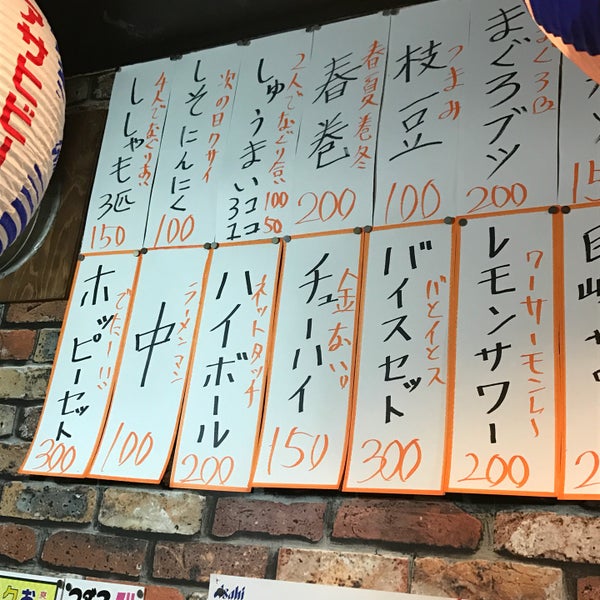 まぐろブツ
200
つまみ
枝豆
100
春夏巻冬
春巻
200
2人でなぐり合い
しゅうまい
3コ 100
1コ 50
次の日クサイ
しそにんにく
100
4人でなぐりあい
ししゃも3匹
150
ワーサーモンレー
レモンサワー
200
バイスセット
300
金ない。
チューハイ
150
ネットタッチ
ハイボール
200
ラーメンマン
中
100
でたー!!
ホッピーセット
300
Asahi